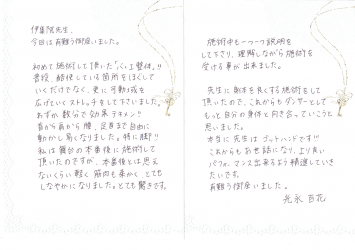 伊集院先生、
今日は有難う御座いました。
初めて施術して頂いた「くぃ工整体」!!
普段、酷使している箇所をほぐして
いくだけでなく、更に可動域を
広げていくストレッチをして下さいました。
わずか数分で効果テキメン!!
首から肩から腰、足首まで自由に
動かし易くなりました。特に脚!!
私は舞台の本番後に施術して
頂いたのですが、本番後とは思え
ないくらい軽く、筋肉も柔かく、とても
しなやかになりました。とても驚きです。
施術中も一つ一つ説明を
して下さり、理解しながら施術を
受ける事が出来ました。
先生に身体を良くする施術をして
頂いたので、これからもダンサーとして
もっと自分の身体と向き合っていこうと
思いました。
本当に先生はゴッドハンドです!!!
これからもお世話になり、より良い
パフォーマンス出来るよう精進していき
たいです。
有難う御座いました。
光永 百花